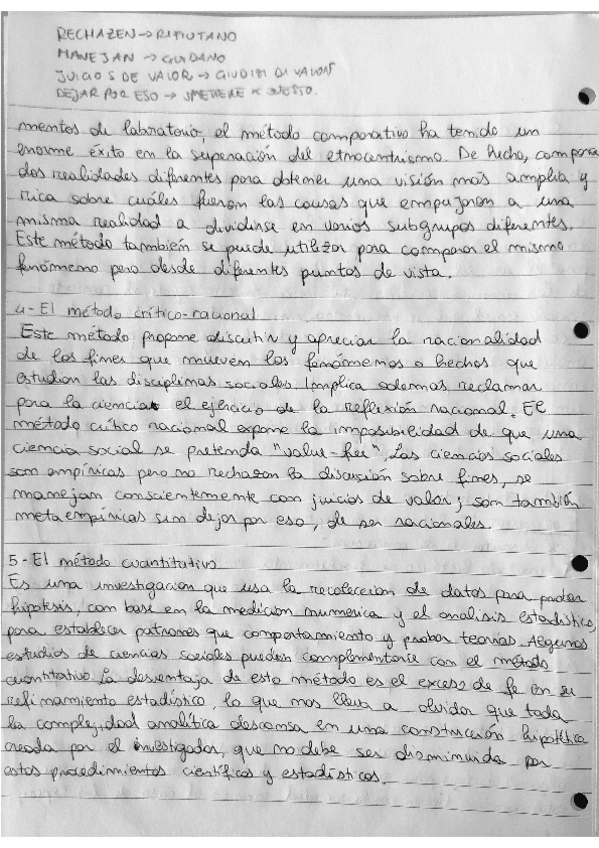 RECHAZEN → RIFIUTANO
MANEJAN → GUIDANO
JUICIOS DE VALOR → GIUDIZI DI VALORI
DEJAR POR ESO → SMETTERE X QUESTO.
mentos de laboratorio, el método comparativo ha tenido un
enorme éxito en la superación del etnocentrismo. De hecho, compara
dos realidades diferentes para obtener una visión más amplia y
rica sobre cuáles fueron las causas que empujaron a una
misma realidad a dividirse en varios subgrupos diferentes.
Este método también se puede utilizar para comparar el mismo
fenómemo pero desde diferentes puntos de vista.
4- El método crítico-racional
Este método propone discutir y apreciar la racionalidad
de los fines que mueven los fenómemos o hechos que
estudian las disciplinas sociales. Implica además reclamar
para la ciencia el ejercicio de la reflexión racional. El
método crítico racional expone la imposibilidad de que una
ciencia social se pretenda "value-free". Las ciencias sociales
son empíricas pero no rechazan la discusión sobre fines, se
manejan conscientemente con juicios de valor; son también
metaempíricas sin dejar por eso, de ser racionales.
5- El método cuantitativo
Es una investigación que usa la recolección de datos para probar
hipótesis, con base en la medición numerica y el analisis estadístico,
para establecer patrones que comportamiento y probar teorías. Algunos
estudios de ciencias sociales pueden complementarse con el método
cuantitativo. La desventaja de esto método es el exceso de fe en su
refinamiento estadístico, lo que nos lleva a olvidar que toda
la complejidad analítica descansa en una construcción hipotética
creada por el investigador, que no debe ser disminuida por
estos procedimientos científicos y estadísticos.